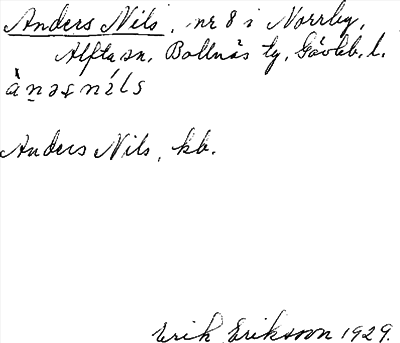 Anders Nils, nr 8 i Norrby,
Alfta sn, Bollnäs tg, Gävleb. l.
ànəṣníls
Anders Nils, kb.
Erik Eriksson 1929.